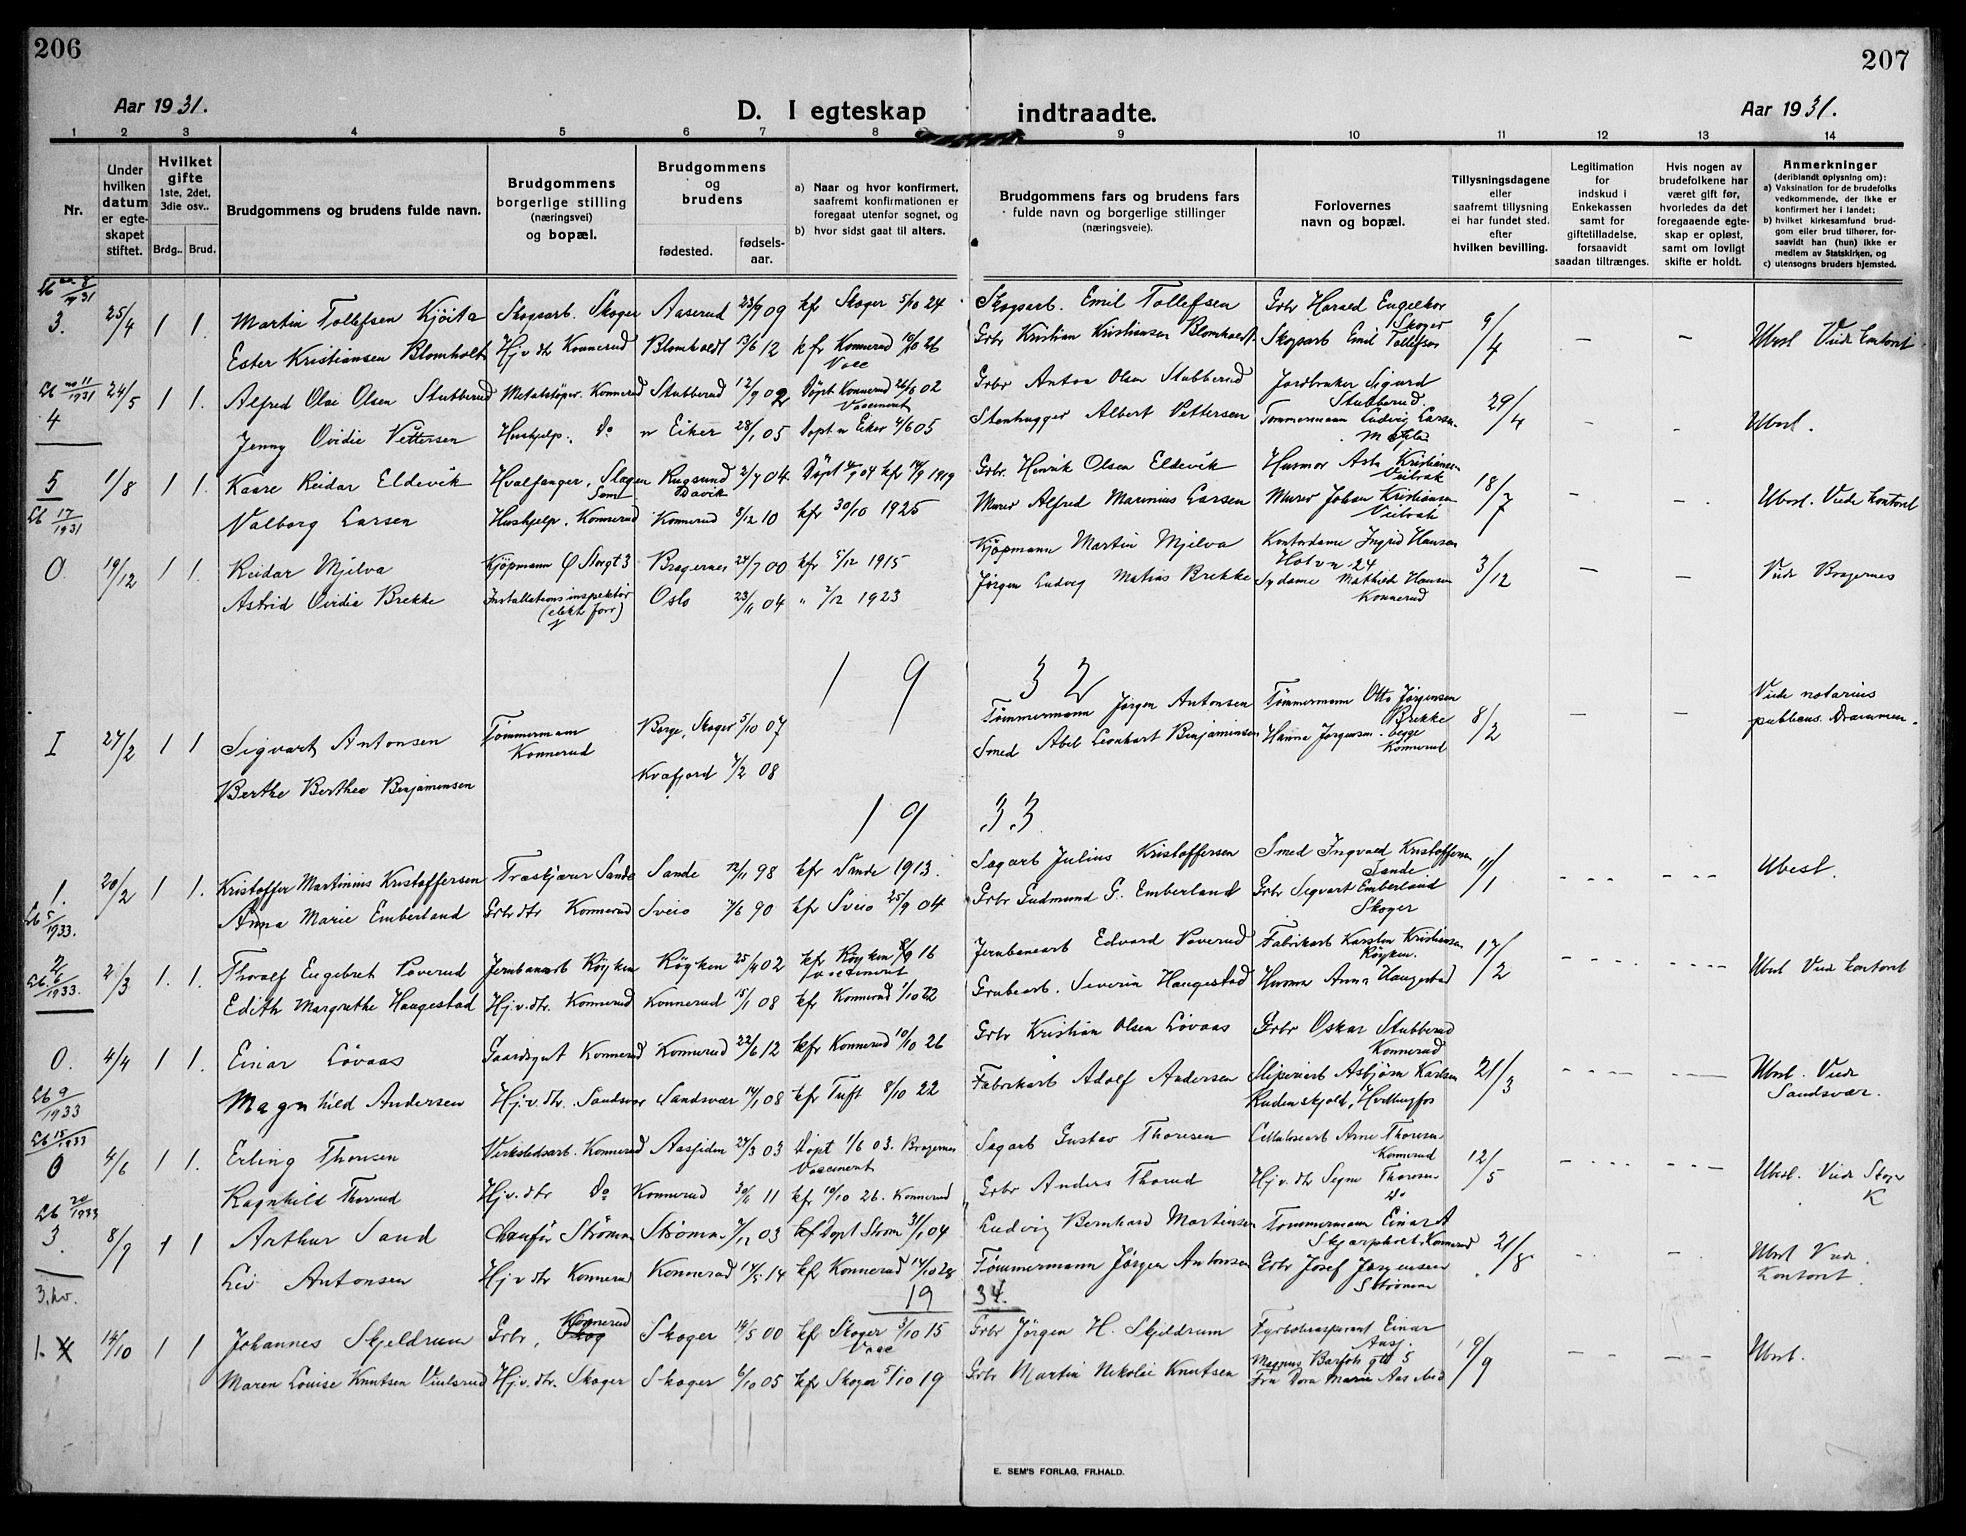 206
207
Aar 1931.
D. I egteskap indtraadte.
Aar 1931.
1 2 3 4 5 6 7 8 9 10 11 12 13 14
Nr.
Under hvilken datum er egteskapet stiftet.
Hvilket gifte 1ste, 2det, 3die osv..
Brdg.. Brud.
Brudgommens og brudens fulde navn.
Brudgommens borgerlige stilling (næringsvei) og bopæl.
Brudgommens og brudens
fødested. fødselsaar.
a) Naar og hvor konfirmert, saafremt konfirmationen er foregaat utenfor sognet, og
b) hvor sidst gaat til alters.
Brudgommens fars og brudens fars fulde navn og borgerlige stillinger (næringsveie).
Forlovernes navn og bopæl.
Tillysningsdagene eller saafremt tillysning ei har fundet sted. efter hvilken bevilling.
Legitimation for indskud i Enkekassen samt for giftetilladelse, forsaavidt saadan tiltrænges.
Hvis nogen av brudefolkene har været gift før, hvorledes da det foregaaende egteskap er opløst, samt om lovligt skifte er holdt.
Anmerkninger (deriblandt oplysning om):
a) Vaksination for de brudefolks vedkommende, der ikke er konfirmert her i landet;
b) hvilket kirkesamfund brudgom eller brud tilhører, forsaavidt han (hun) ikke er medlem av Statskirken, og
c) utensogns bruders hjemsted.
3. 25/4 1 1. Martin Tollefsen Kjöita Skogsarb. Skoger Aaserud 23/9 09 kfr Skoger 5/10 24 Skogsarb. Emil Tollefsen Grbr Harald Engelhor Skoger 9/4 – – Ubesl Viede kontoret
Ester Kristiansen Blomholt Hj.v.dtr Konnerud Blomholdt 13/6 12 kfr Konnerud 10/10 26 Vacc Grbr Kristian Kristiansen Blomholdt Skogsarb Emil Tollefsen
Lb no 11/1931 4 24/5 1 1. Alfred Olai Olsen Stubberud Metalstøper. Konnerud Stubberud 12/9 02 Döpt Konnerud 26/8 02 Vaccinert Grbr Anton Olsen Stubberud Jordbruker Sigurd Stubberud. 29/4 – – Ubesl.
Jenny Ovidie Pettersen Hushjelp. Do n Eiker 28/1 05 Dopt n Eiker 4/6 05 Stenhugger Albert Pettersen Tømmermann Ludvig Larsen
5 1/8 1 1 Kaare Reidar Eldevik Hvalfanger, Slagen Rugsund Davik 2/7 04 Grbr. Henrik Olsen Eldevik Husmor Asta Kristiansen Veitvak 18/7 – – Ubesl. Viede kontoret
Lb 17/1931 Valborg Larsen Hushjelp. Konnerud Konnerud 8/12 10 kfr 30/10 1925 Murer Alfred Marinius Larsen Murer Johan Kristiansen Veitvak
0. 19/12 1 1. Reidar Mjelva Kjöpmann Storgt 3 Bragernes 24/7 00 kfr 5/12 1915 Kjöpmann Martin Mjelva Kontordame Ingrid Hansen 3/12 – – Viede Bragernes
Astrid Ovidia Brekke Installationsinspektör (elekt forr) Oslo 23/11 04 " 7/12 1923 Jørgen Ludvig Matias Brekke Sydame Mathild Hansen Konnerud
1 9 3 2
I 27/2 1 1 Sigvart Antonsen Tømmermann Konnerud Berge, Skoger 5/10 07 Tømmermann Jörgen Antonsen Tömmermann Otto Jörgensen Brekke 8/2 – – Viede notarius publicus. Drammen.
Berthe Berthea Benjaminsen Kvafjord 7/2 08 Smed Abel Leonhart Benjaminsen Hanna Jørgensen. begge Konnerud
1 9 3 3.
1. 20/2 1 1. Kristoffer Martinius Kristoffersen Sande Sande 12/11 98 kfr Sande 1913. Sagarb Julius Kristoffersen Smed Ingvald Kristoffersen Sande. 11/1 Ubesl.
Lb 5/1933. Anna Marie Emberland Grbr dtr Konnerud Sveio 7/6 90 kfr Sveio 25/9 04 Grbr Gudmund G. Emberland Grbr Sigvart Emberland Skoger
2 Lb. 6/1933. 2/3 1. 1. Thoralf Engebret Poverud Jernbanearb Röyken Röyken 25/4 02 kfr Röyken 8/9 16 Vaccinert Jernbanearb Edvard Poverud Fabrikarb Karsten Kristiansen Röyken. 17/2 Ubesl Viede kontoret
Edith Margrethe Haugestad Hj.v.dtr. Konnerud Konnerud 15/1 08 kfr Konnerud 1/10 22 Grubearb. Severin Haugestad Husmor Anna Haugestad
0. 4/4 1 1. Einar Lövaas Gaardsgut Konnerud Konnerud 22/6 12 kfr Konnerud 10/10 26 Grbr Kristian Olsen Lövaas Grbr Oskar Stubberud Konnerud 21/3 Ubesl. Viede Sandsvær.
Lb 9/1933 Magnhild Andersen Hj.v.dtr. Sandsvær Sandsvær 14/1 08 kfr Tuft 8/10 22 Fabrikarb Adolf Andersen Sliperiarb Asbjørn Karlsen Rudenskjold, Hvittingfos
Lb 15/1933 0 4/6 1 1. Erling Thoresen Verkstedsarb. Konnerud Aassiden 27/3 03 Döpt 1/6 03. Bragernes Vaccinert Sagarb Gustav Thoresen Cellulosearb Arne Thoresen Konnerud 12/5 Ubesl. Viede Skoger K
Ragnhild Thorrud Hj.v.dtr Do Konnerud 30/11 11 kfr 10/10 26. Konnerud Grbr Anders Thorud Hj.v.dtr Signe Thoresen Do
Lb 20/1933 3. 8/9 1 1 Arthur Sand Chaufør Strømm Strømm 7/12 03 Döpt Strøm 31/1 04 Ludvig Bernhard Martinsen Tømmermann Einar A Konnerud 21/8 Ubesl Viede Kontoret.
3. kv. Liv Antonsen Hj v dtr Konnerud Konnerud 14/5 14 kfr Konnerud 14/10 28 Tømmermann Jörgen Antonsen Grbr Josef Jørgensen Strømm
19 34.
1. 14/10 1 1 Johannes Skjeldrum Grbr, Konnerud Skoger 14/5 00 kfr Skoger 3/10 15 Vacc Grbr Jörgen H. Skjeldrum Fyrbøteraspirant Einar Aas. Magnus Barfots gt 5 9/9 – – Ubesl.
Maren Louise Knutsen Hj.v.dtr. Skoger Skoger 6/10 05 kfr Skoger 5/10 19 Grbr Martin Nikolai Knutsen Fru Dora Marie Aas
E. SEM'S FORLAG, FR.HALD.